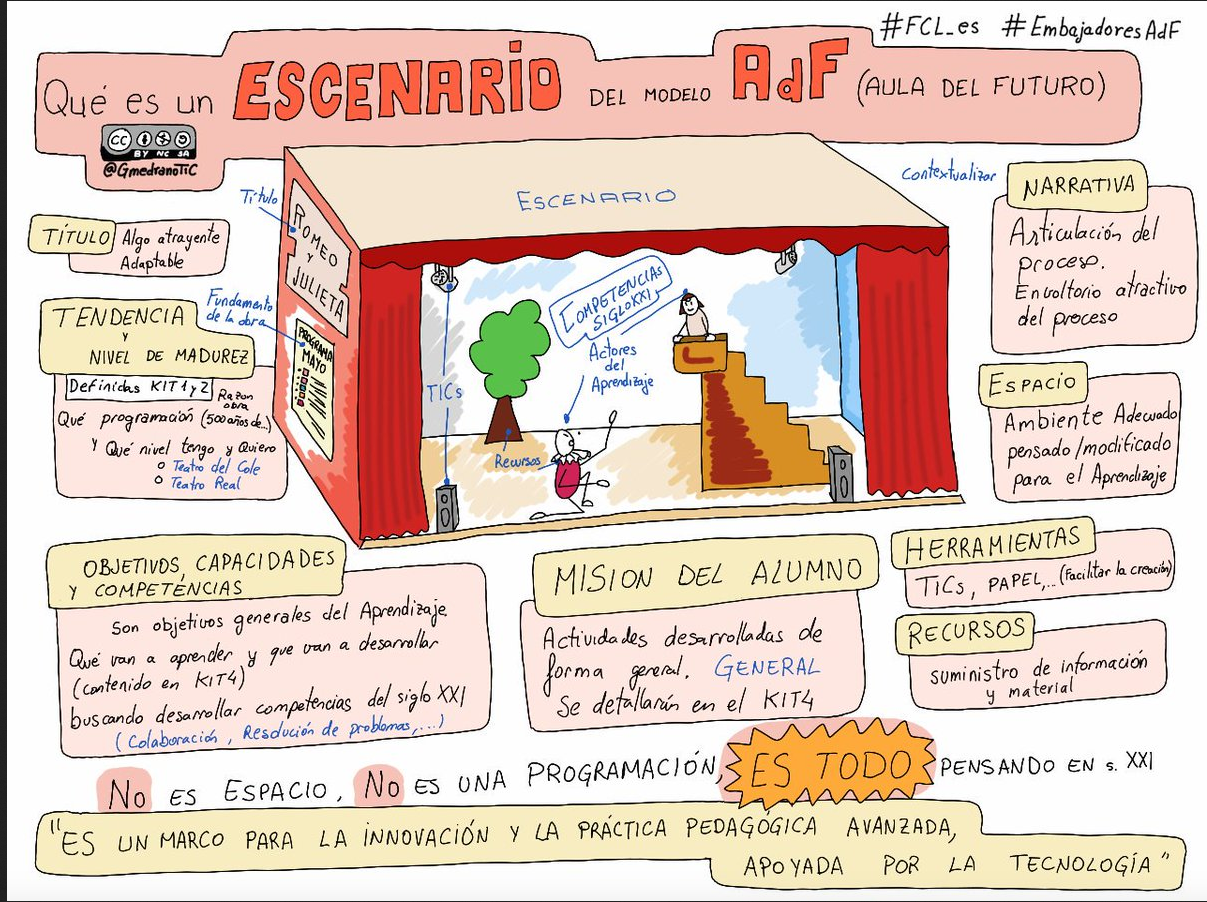 #FCL_es #EmbajadoresAdF
Qué es un ESCENARIO DEL MODELO AdF (AULA DEL FUTURO)
CC BY NC SA
@GmedranoTIC
Título
TÍTULO
Algo atrayente
Adaptable
Fundamento
de la obra
TENDENCIA
Y
NIVEL DE MADUREZ
Definidas KIT1 y 2
Razon
obra
Qué programación (500 años de...)
Y Qué nivel tengo y Quiero
Teatro del Cole
Teatro Real
ESCENARIO
ROMEO
Y
JULIETA
PROGRAMA
MAYO
TICs
COMPETENCIAS
SIGLO XXI
Actores
del
Aprendizaje
Recursos
Contextualizar
NARRATIVA
Articulación del
proceso.
Envoltorio atractivo
del proceso
ESPACIO
Ambiente Adecuado
pensado/modificado
para el Aprendizaje
HERRAMIENTAS
TICs, PAPEL,... (Facilitar la creación)
RECURSOS
suministro de información
y material
OBJETIVOS, CAPACIDADES
Y COMPETÉNCIAS
Son objetivos generales del Aprendizaje
Qué van a aprender y que van a desarrollar
(contenido en KIT4)
buscando desarrollar competencias del siglo XXI
(Colaboración, Resolución de problemas,...)
MISION DEL ALUMNO
Actividades desarrolladas de
forma general. GENERAL
Se detallarán en el KIT4
No ES ESPACIO, No ES UNA PROGRAMACIÓN, ES TODO PENSANDO EN s. XXI
"ES UN MARCO PARA LA INNOVACIÓN Y LA PRÁCTICA PEDAGÓGICA AVANZADA,
APOYADA POR LA TECNOLOGÍA"